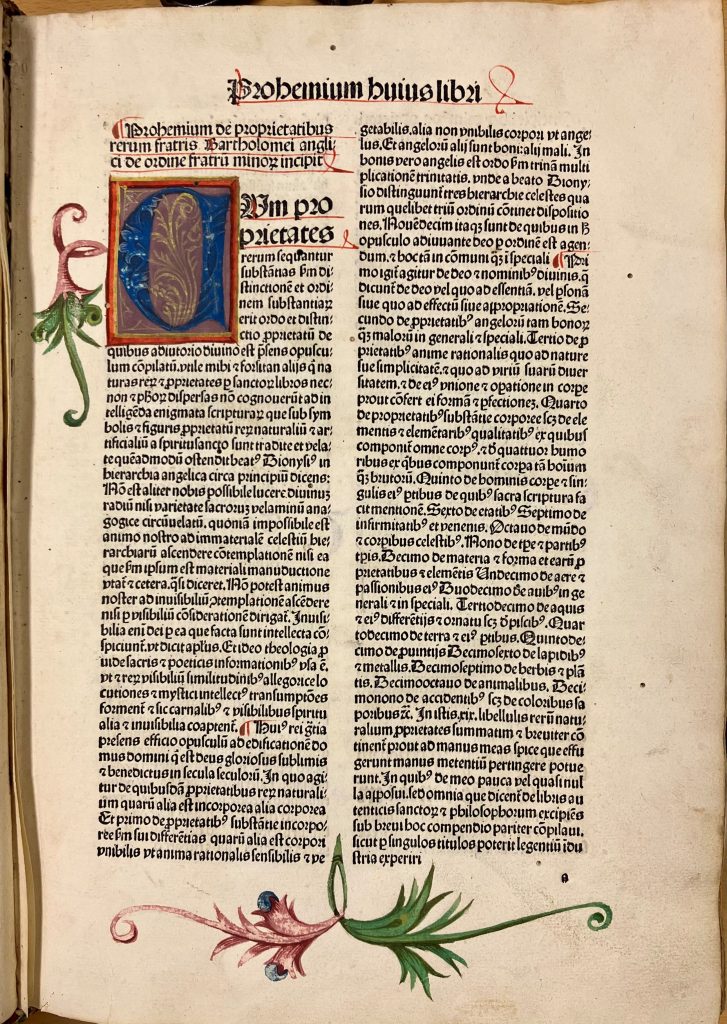 Prohemium huius libri
Prohemium de proprietatibus
rerum fratris Bartholomei angli
ci de ordine fratrū minoꝝ incipit
CUm pro
prietates
rerum sequantur
substātias ẜm di
stinctionē et ordi
nem substantiaꝝ
erit ordo et distin-
ctio ꝓprietatū de
quibus adiutorio diuino est p̄sens opuscu-
lum cōpilatū. vtile mihi ⁊ forsitan alijs q̄ na
turas reꝝ ⁊ ꝓprietates ꝑ sanctoꝝ libros nec
non ⁊ ph̄oꝝ dispersas nō cognouerūt ad in
telligēda enigmata scripturaꝝ que sub sym
bolis ⁊ figuris ꝓprietatū reꝝ naturaliū ⁊ ar-
tificialiū a spiritusancto sunt tradite et vela-
te quēadmodū ostendit beatꝰ Dionysiꝰ in
hierarchia angelica circa principiū dicens:
Nō est aliter nobis possibile lucere diuinuꝫ
radiū nisi varietate sacroꝝ velaminū ana-
gogice circūuelatū. quoniā impossibile est
animo nostro ad immaterialē celestiū hie-
rarchiarū ascendere cōtemplationē nisi ea
que ẜm ipsum est materiali manuductione
vtat̄ ⁊ cetera. q̄si diceret. Nō potest animus
noster ad inuisibiliū ꝯtemplationē ascēdere
nisi ꝑ visibiliū cōsiderationē dirigat̄. Inuisi-
bilia eni̅ dei ꝑ ea que facta sunt intellecta cō-
spiciunt̄. vt dicit apl̄us. Et ideo theologia ꝓ
uide sacris ⁊ poeticis informationibꝰ vsa ē.
vt ⁊ reꝝ visibiliū similitudinibꝰ allegorice lo
cutiones ⁊ mystici intellectꝰ transumptiōes
forment̄ ⁊ sic carnalibꝰ ⁊ visibilibus spiritu
alia ⁊ inuisibilia coaptent̄. Huiꝰ rei gr̄tia
presens efficio opusculū ad edificationē do
mus domini q̄ est deus gloriosus sublimis
⁊ benedictus in secula seculorū. In quo agi
tur de quibusdā ꝓprietatibus reꝝ naturali-
um quarū alia est incorporea alia corporea
Et primo de ꝓprietatibꝰ substātie incorpo-
ree ẜm sui differētias quarū alia est corpori
vnibilis vt anima rationalis sensibilis ⁊ ve
getabilis. alia non vnibilis corpori vt ange-
lus. Et angelorū alij sunt boni: alij mali. In
bonis vero angelis est ordo ẜm trinā multi
plicationem trinitatis. vnde a beato Diony-
sio distinguunt̄ tres hierarchie celestes qua
rum quelibet triū ordinū cōtinet dispositio
nes. Nouēdecim itaqꝫ sunt de quibus in ħ
opusculo adiuuante deo ꝑ ordinē est agen-
dum. ⁊ hoc tā in cōmuni qꝫ i̅ speciali Pri
mo igit̄ agitur de deo ⁊ nominibꝰ diuinis. q̄
dicūt̄ de deo vel quo ad essentiā. vel ꝑsonā
siue quo ad effectū siue appropriationē. Se-
cundo de ꝓprietatibꝰ angelorū tam bonoꝝ
qꝫ maloꝝ in generali ⁊ speciali. Tertio de ꝓ
prietatibꝰ anime rationalis quo ad nature
sue simplicitatē. ⁊ quo ad viriū suarū diuer
sitatem. ⁊ de eiꝰ vnione ⁊ oꝑatione in corꝑe
prout cōfert ei formā ⁊ ꝑfectionez. Quarto
de proprietatibꝰ substātie corporee scꝫ de ele
mentis ⁊ elemētaribꝰ qualitatibꝰ ex quibus
componit̄ omne corpꝰ. ⁊ đ quattuor humo
ribus ex qͥbus componunt̄ corꝑa tā hoi̅um
qꝫ brutorū. Quinto de hominis corꝑe ⁊ sin-
gulis eiꝰ ꝑtibus de quibꝰ sacra scriptura fa
cit mentionē. Sexto de etatibꝰ Septimo de
infirmitatibꝰ et venenis. Octauo de mūdo
⁊ corꝑibus celestibꝰ. Nono de tp̄e ⁊ partibꝰ
tp̄is. Decimo de materia ⁊ forma et earū ꝓ
prietatibus ⁊ elemētis Undecimo de aere ⁊
passionibus eiꝰ Duodecimo đ auibꝰ in ge
nerali ⁊ in speciali. Tertiodecimo de aquis
⁊ eiꝰ differētijs ⁊ ornatu scꝫ đ piscibꝰ. Quar
todecimo de terra ⁊ eiꝰ ꝑtibus. Quintode-
cimo de ꝓuintijs Decimosexto de lapidibꝰ
⁊ metallis. Decimoseptimo de herbis ⁊ plā
tis. Decimooctauo de animalibus. Deci-
monono de accidentibꝰ scꝫ de coloribus sa
poribus ⁊c̄. In istis .xix. libellulis rerū natu-
ralium ꝓprietates summatim ⁊ breuiter con
tinent̄ prout ad manus meas spice que effu
gerunt manus metentiū pertingere potue
runt. In quibꝰ de meo pauca vel quasi nul
la apposui. sed omnia que dicent̄ de libris au
tenticis sanctoꝝ ⁊ philosophorum excipiēs
sub breui hoc compendio pariter cōpilaui.
sicut ꝑ singulos titulos poterit legentiū i̅du
stria experiri
a